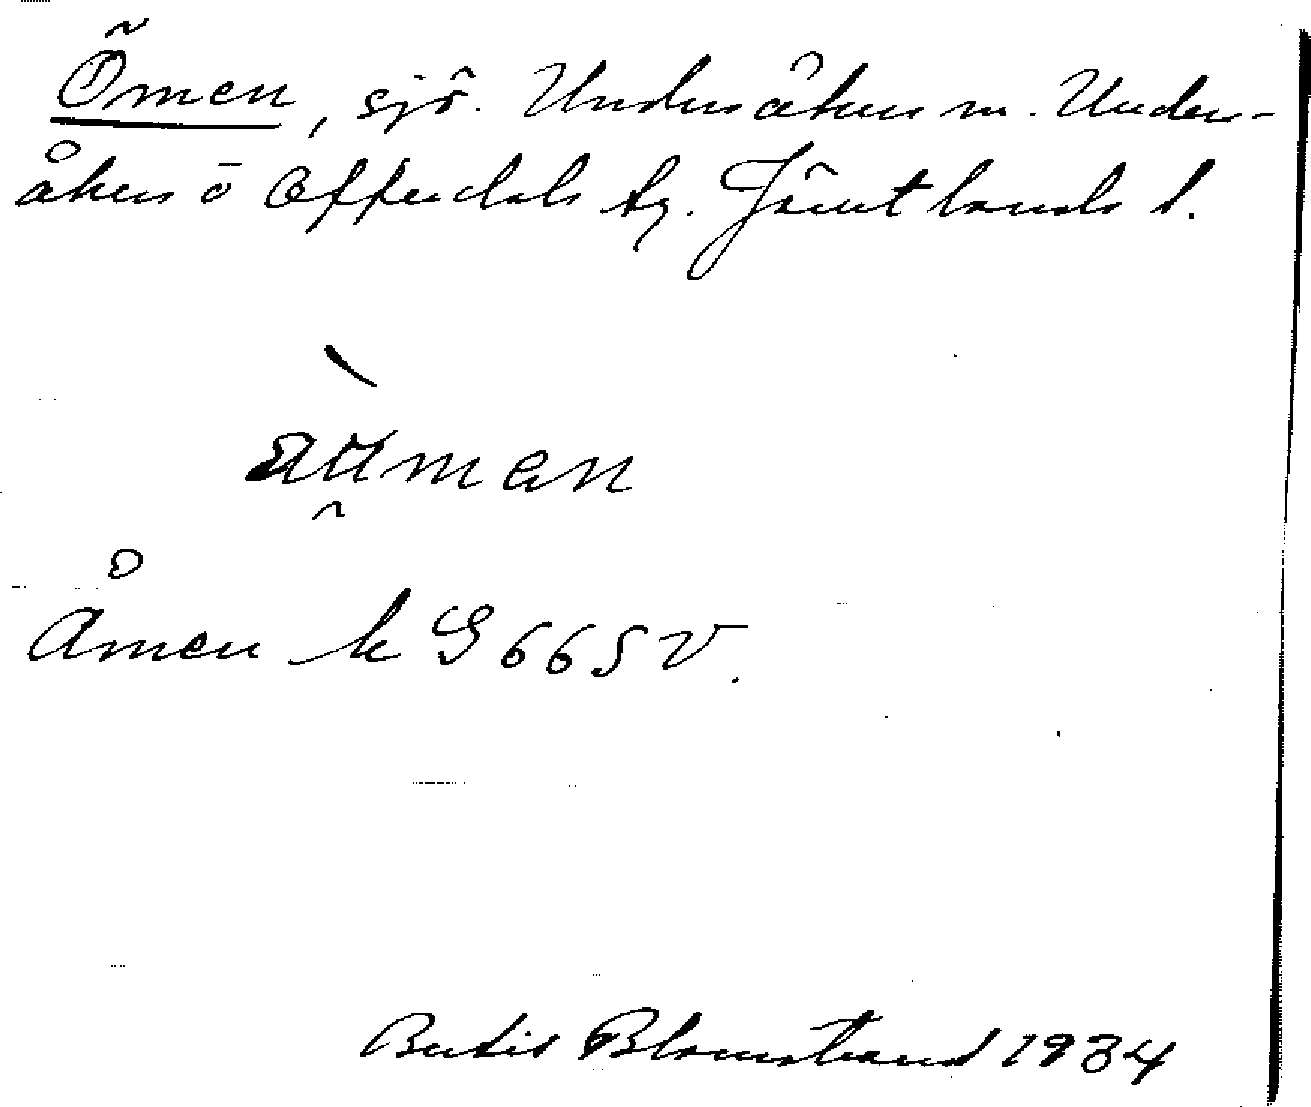 Ömen, sjö. Undersåkers sn. Under-
såkers o Offerdals tg. Jämtlands l.
Åmen k G 66 5 V.
Bertil Blomstrand 1934